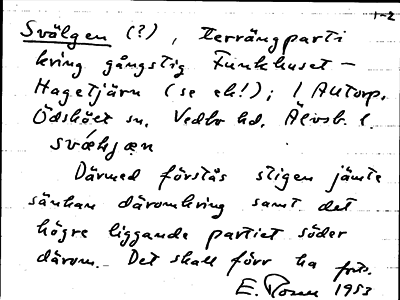 1-2
Svälgen (?), Terrängparti
kring gångstig Funkhuset -
Hagetjärn (se ek!); i Autorp.
Ödskölt sn. Vedbo hd. Älvsb. l.
Därmed förstås stigen jämte
sänkan däromkring samt det
högre liggande partiet söder
därom. Det skall förr ha forts.
E. Rosen 1953